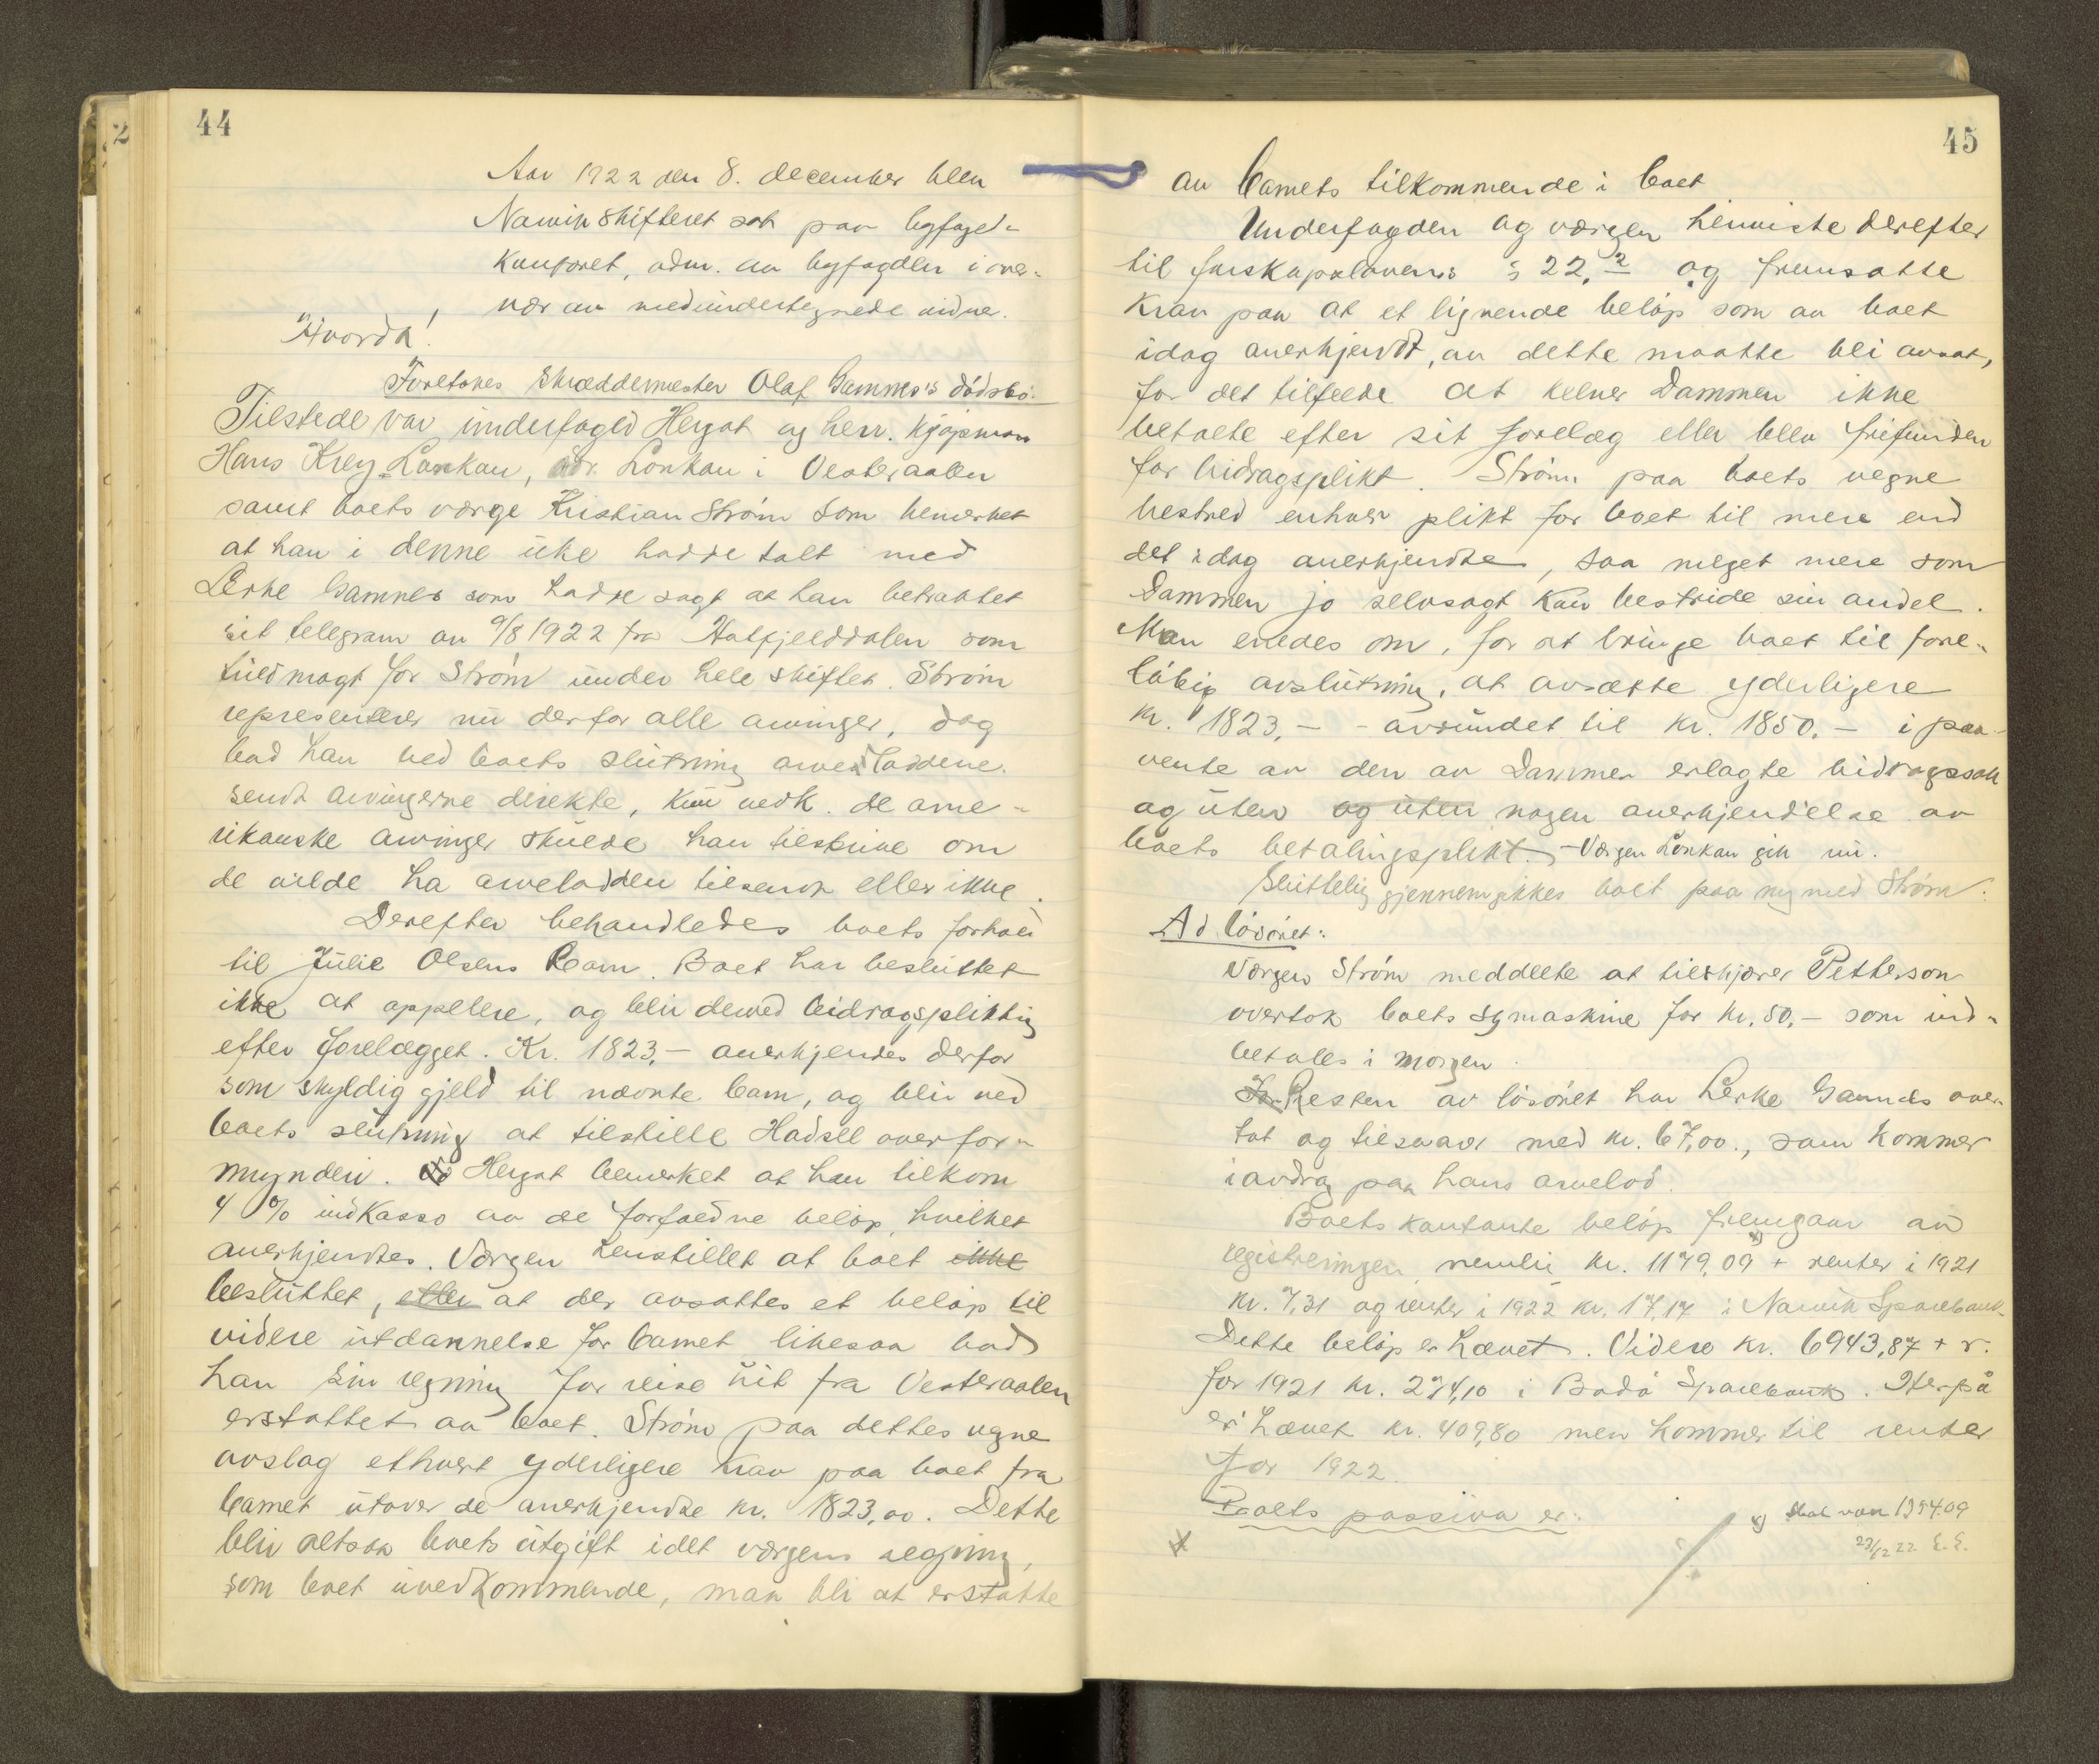 44
Aar 1922 den 8. december blev
Narvik skifteret sat paa byfoged-
kontoret, adm. av byfogden i over-
vær av medundertegnede vidne.
Hvorda!
Foretokes Skræddemester Olaf Gamnes's dödsbo.
Tilstede var underfoged Hergot og herr. kjöpman
Hans Krey Lonkan, adr. Lonkan i Vesteraalen
samt boets værge Kristian Ström som bemerket
at han i denne uke hadde talt med
Lerke Gamnes som hadde sagt at han betraktet
sit telegram av 9/8 1922 fra Hatfjelddalen som
fuldmagt for Ström under hele skiftet. Ström
representerer nu derfor alle arvinger, dog
bad han ved boets slutning arveloddene
sendt arvingerne direkte, kun vedk. de ame-
rikanske arvinger skulde han tilskrive om
de vilde ha arvelodden tilsendt eller ikke.
Derefter behandledes boets forhold
til Julie Olsens Barn. Boet har besluttet
ikke at appellere, og blir derved bidragspliktig
efter forelægget. Kr. 1823,- anerkjendes derfor
som skyldig gjeld til nævnte barn, og blir ved
boets slutning at tilstille Hadsel overfor-
mynderi. Hergot bemerket at han tilkom
4 % indkasso av de forfaldne beløp, hvilket
anerkjendtes. Værgen henstillet at boet ikke
besluttet, eller at der avsattes et beløp til
videre utdannelse for barnet likesaa bad
han sin regning for reise hit fra Vesteraalen
erstattet av boet. Ström paa dettes vegne
avslog ethvert yderligere krav paa boet fra
barnet utover de anerkjendte kr. 1823,00. Dette
blir altsaa boets utgift idet værgens regning,
som boet uvedkommende, maa bli at erstatte
45
av barnets tilkommende i boet
Underfogden og værgen henviste derefter
til farskapslovens § 22,2 og fremsatte
krav paa at et lignende beløp som av boet
idag anerkjendt, av dette maatte bli avsat,
for det tilfælde at kelner Dammen ikke
betalte efter sit forelæg eller blev frifunden
for bidragsplikt. Ström paa boets vegne
bestred enhver plikt for boet til mere end
det idag anerkjendte, saa meget mere som
Dammen jo selvsagt kan bestride sin andel.
Man enedes om, for at bringe boet til fore-
löbig avslutning, at avsætte yderligere
kr. 1823,- - avrundet til kr. 1850.- i paa-
vente av den av Dammen erlagte bidragssak
og uten og uten nogen anerkjendelse av
boets betalingsplikt. - Værgen Lonkan gik nu.
Sluttelig gjennemgikkes boet paa ny med Ström.
Ad lösöret:
Værgen Ström meddelte at tilskjærer Petterson
overtok boets symaskine for kr. 50.- som ind-
betales i morgen.
Resten av lösöret har Lerke Gamnes over-
tat og tilsvarer med kr. 67,00., som kommer
i avdrag paa hans arvelod.
Boets kontante belöp fremgaar av
registreringen nemlig kr. 1179,09 x) + renter i 1921
kr. 7,31 og renter i 1922 kr. 17,17 i Narvik Sparebank.
Dette belöp er hævet. Videre kr. 6943,87 + r.
for 1921 kr. 274,10 i Bodö Sparebank. Herpå
er hævet kr. 409,80 men kommer til renter
for 1922.
Boets passiva er:
x) skal være 1394.09
23/12 22 E.E.